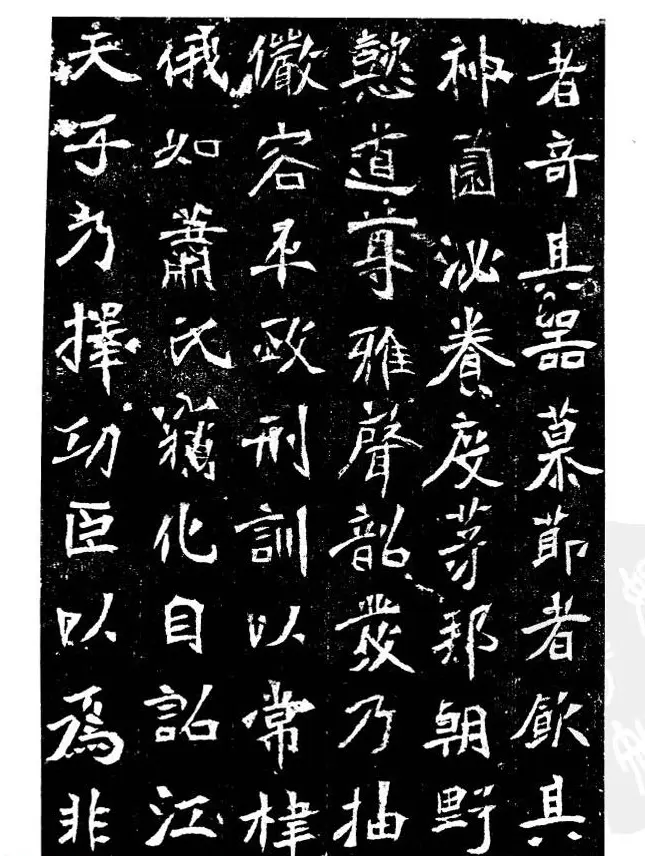 者奇其器慕節者飲其
神泌養度邦朝野
懿道尊雅聲韶發乃抽
儼容平政刑訓以常
俄如蕭氏化自詔江
天子乃擇功臣以爲非